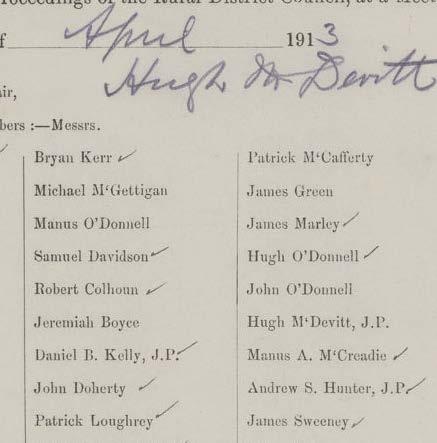 Proceedings of the Rural District Council, at a Meet
f April 1913
Hugh McDevitt
air,
bers :—Messrs.
Bryan Kerr ✓
Michael M‘Gettigan
Manus O’Donnell
Samuel Davidson ✓
Robert Colhoun ✓
Jeremiah Boyce
Daniel B. Kelly, J.P. ✓
John Doherty ✓
Patrick Loughrey ✓
Patrick M‘Cafferty
James Green
James Marley ✓
Hugh O’Donnell ✓
John O’Donnell
Hugh M‘Devitt, J.P.
Manus A. M‘Creadie ✓
Andrew S. Hunter, J.P. ✓
James Sweeney ✓